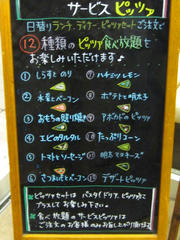 サービス ピッツァ
日替りランチ、ディナー、ピッツァセートご注文で
12種類のピッツァ食べ放題を
お楽しみいただけます♪
① しらすとのり
② 水菜とベーコン
③ おもちの照り焼き
④ エビのタルタル
⑤ トマトソーセージ
⑥ さつまいもとベーコン
⑦ ハチミツレモン
⑧ ポテトと明太子
⑨ アボカドのピッツァ
⑩ たっぷりコーン
⑪
⑫ デザートピッツァ
※ピッツァセートは パスタ(ドリア、ピッツァ)に
プラスして お楽しみ下さい。
※食べ放題のサービスピッツァは
ご注文のお客様のみお召し上がり頂けます